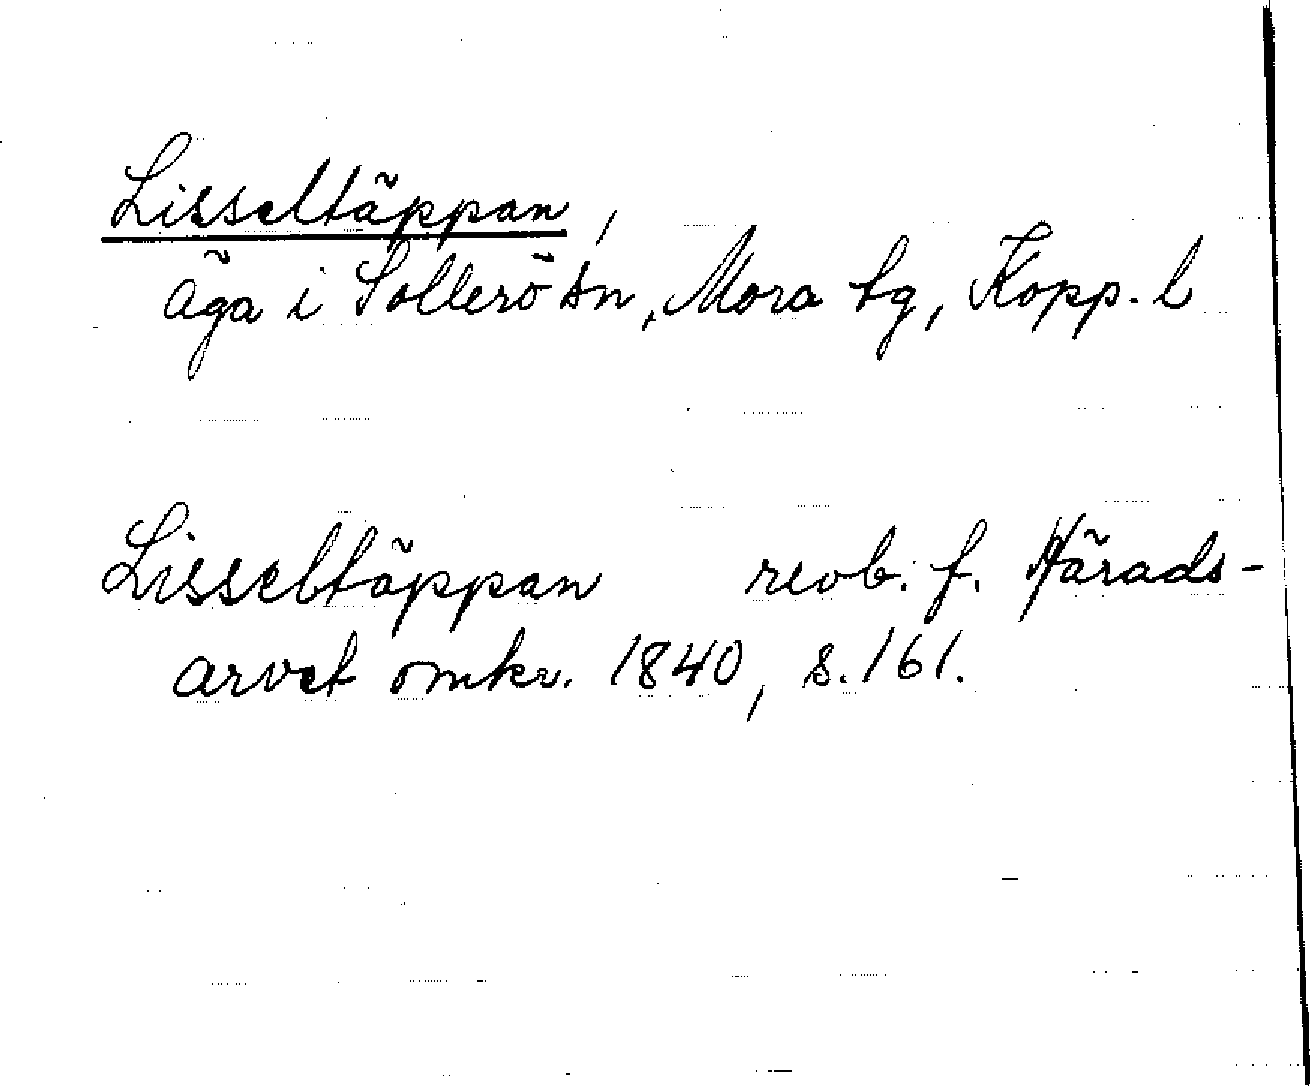 Lisseltäppan,
äga i Sollerö sn, Mora tg, Kopp. l
Lisseltäppan revb. f. Härads-
arvet omkr. 1840, s. 161.